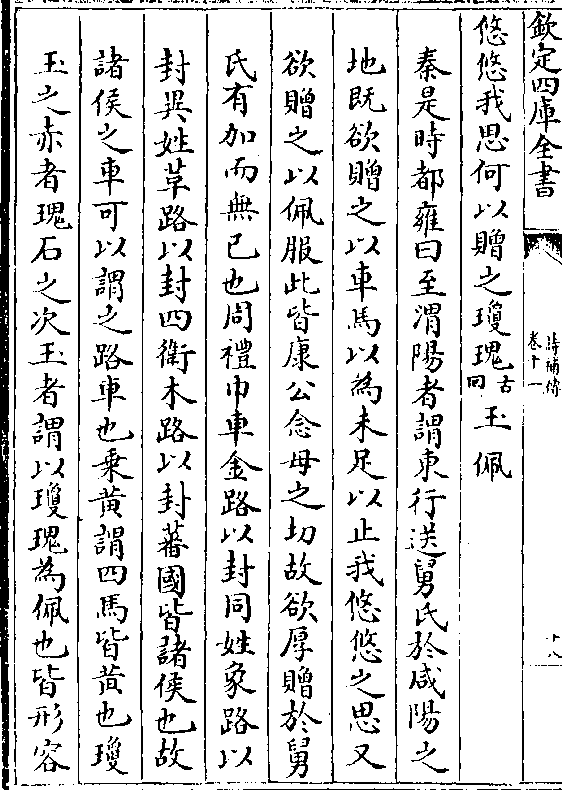 欽定四庫全書
詩補傳
卷十一
十八
悠悠我思何以贈之瓊瑰古回玉佩
秦是時都雍曰至渭陽者謂東行送舅氏於咸陽之
地既欲贈之以車馬以為未足以止我悠悠之思又
欲贈之以佩服此皆康公念母之切故欲厚贈於舅
氏有加而無已也周禮巾車金路以封同姓象路以
封異姓革路以封四衛木路以封蕃國皆諸侯也故
諸侯之車可以謂之路車也乗黄謂四馬皆黄也瓊
玉之赤者瑰石之次玉者謂以瓊瑰為佩也皆形容